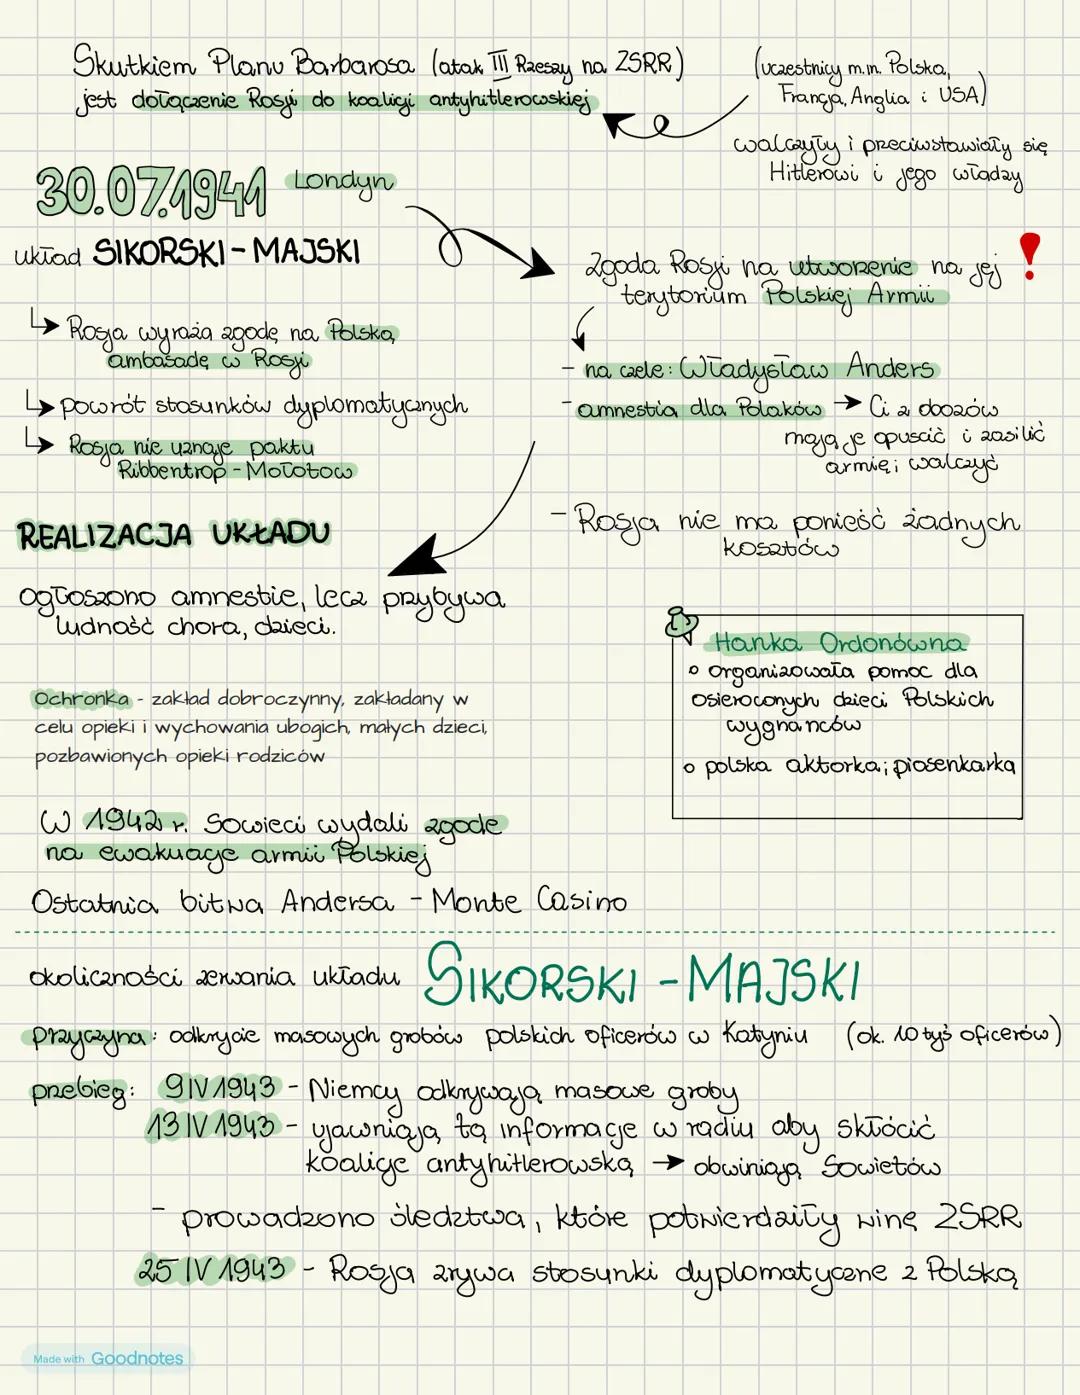 Skutkiem Planu Barbarosa (atak III Rzeszy na ZSRR)
jest dołączenie Rosji do koalicji antyhitlerowskiej
(uczestnicy m.in. Polska,
Francja, Anglia i USA)
walczyły i przeciwstawiały się
Hitlerowi i jego władzy
30.07.1941 Londyn
układ SIKORSKI - MAJSKI
↳ Rosja wyraża zgodę na Polską
ambasadę w Rosji
↳ powrót stosunków dyplomatycznych
↳ Rosja nie uznaje paktu
Ribbentrop - Mołotow
Zgoda Rosji na utworzenie na jej !
terytorium Polskiej Armii
- na czele: Władysław Anders
- amnestia dla Polaków → Ci z obozów
mają je opuścić i zasilić
armię i walczyć
- Rosja nie ma ponieść żadnych
kosztów
REALIZACJA UKŁADU
ogłoszono amnestie, lecz przybywa
ludność chora, dzieci.
Ochronka - zakład dobroczynny, zakładany w
celu opieki i wychowania ubogich, małych dzieci,
pozbawionych opieki rodziców
Hanka Ordonówna
o organizowała pomoc dla
osieroconych dzieci Polskich
wygnanców
o polska aktorka i piosenkarka
W 1942 r. Sowieci wydali zgode
na ewakuacje armii Polskiej
Ostatnia bitwa Andersa - Monte Casino
okoliczności zerwania układu SIKORSKI - MAJSKI
Przyczyna: odkrycie masowych grobów polskich oficerów w Katyniu (ok. 10 tyś oficerów)
przebieg: 9 IV 1943 - Niemcy odkrywają masowe groby
13 IV 1943 - ujawniają tą informacje w radiu aby skłócić
koalicje antyhitlerowską → obwiniają Sowietów
- prowadzono śledztwa, które potwierdziły winę ZSRR
25 IV 1943 - Rosja zrywa stosunki dyplomatyczne z Polską
Made with Goodnotes